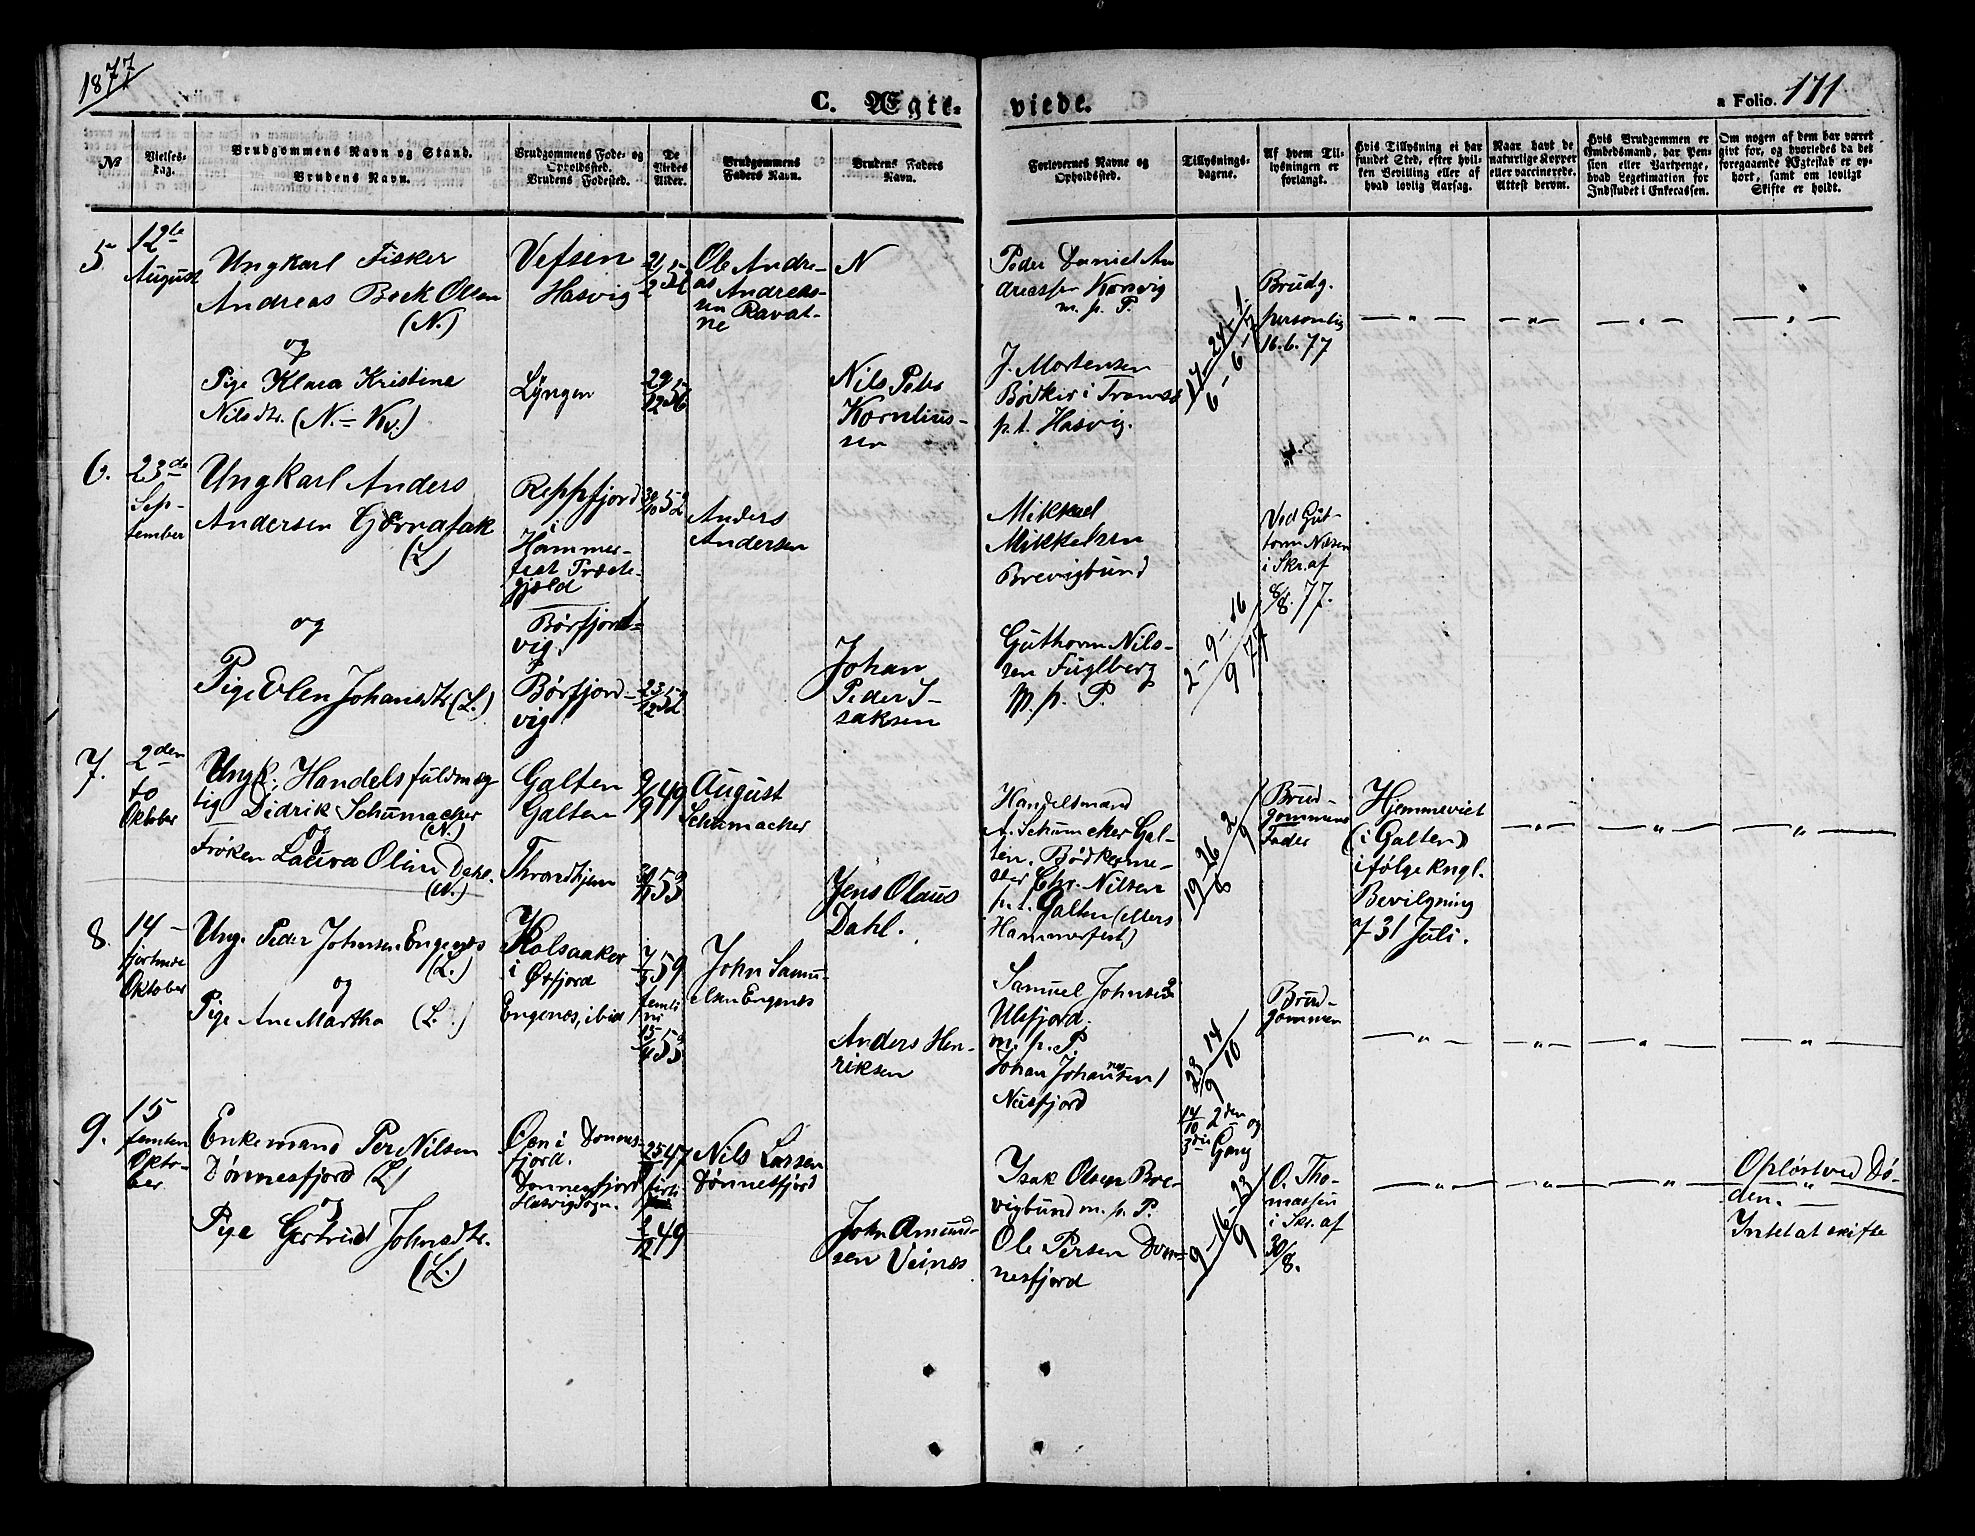 1877
C. Ægte-
viede.
a Folio. 171
No
Vielses-
dag.
Brudgommens Navn og Stand.
Brudens Navn.
Brudgommens Føde- og
Opholdssted.
Brudens Fødested.
De
Viedes
Alder.
Brudgommens
Faders Navn.
Brudens Faders
Navn.
Forlovernes Navne og
Opholdssted.
Tillysnings-
dagene.
Af hvem Til-
lysningen er
forlangt.
Hvis Tillysning ei har
fundet Sted, efter hvil-
ken Bevilling eller af
hvad lovlig Aarsag.
Naar havt de
naturlige Kopper
eller vaccinerede.
Attest derom.
Hvis Brudgommen er
Embedsmand, har Pen-
sion eller Vartpenge,
hvad Legitimation for
Indskudet i Enkecassen.
Om nogen af dem har været
gift før, og hvorledes da det
foregaaende Ægteskab er op-
hørt, samt om lovligt
Skifte er holdt.
5
12te
August
Ungkarl Fisker
Andreas Beck Olsen
(N.)
og
Pige Klara Kristine
Nilsdtr. (N.= Kv.)
Vefsen
Hasvig
Lyngen
Ole Andre-
as Andreas-
sen Ravat-
ne
N
Nils Peter
Kornelius-
sen
Peder Daniel An
dreassen Korsvig
m. p. P.
J. Mortensen
Bødker i Tromsø
p.t. Hasvig.
Brudg.
personlig
16.6.77
6.
23de
Sep-
tember
Ungkarl Anders
Andersen Gjørnafak
(L)
og
Pige Elen Johansdtr (L.)
Reppfjord
i
Hammer-
fest Præste-
gjæld
Børfjord=
vig.
Børfjord-
vig
30/10 52
23/12 52
Anders
Andersen
Johan
Peder I-
saksen
Mikkel
Mikkelsen
Brevigbund
Guthorm Nils-
sen Fuglberg
m. p. P.
2-9-16/9 77
Ved Gut-
torm Nilsen
i Skr. af
8/8. 77.
7.
2den
to
Oktober
Ungk: Handelsfuldmæg
tig Didrik Schumacker
(N.)
og
Frøken Laura Oline Dahl.
(N.)
Galten
Galten
Throndhjem
9/9 49
August
Schumacker
Jens Olaus
Dahl.
Handelsmand
A. Schumcker Gal-
ten. Bødkerme-
ster Chr. Nilsen
p.t. Galten (ellers
Hammerfest)
19-26/8 2/9
Brud-
gommens
Fader
Hjemmeviet
(i Galten)
ifølge kngl.
Bevilgning
af 31 Juli.
8.
14-
fjortende
Oktober
Ung. Peder Johnsen Engenæs
(L.)
og
Pige Ane Martha (L.)
Kolsaaker
i Øxfjord
Engenæs, ibid
John Samu-
elsen Engenæs
Anders Hen-
riksen
Samuel Johnsen
Ulsfjord.
m. p. P.
Johan Johannsen
Nusfjord
23/9 14/10
14/10 2den og
3die Gang
Brud-
gommen
9.
15
femten
Okto-
ber
Enkemand Per Nilsen
Dønnesfjord (L)
og
Pige Gertrud Johnsdtr.
(L.)
Øen i Dønnes-
fjord.
Dønnesfjord
Hasvig Sogn.
Nils Larsen
Dønnesfjord
John Amund-
sen Veines
Isak Olsen Bre-
vigbund m. p. P.
Ole Persen Døn-
nesfjord
9-16-23/9
O. Tho-
massen
i Skr. af
30/8.
Opløst ved Dø-
den.
Intet at skifte